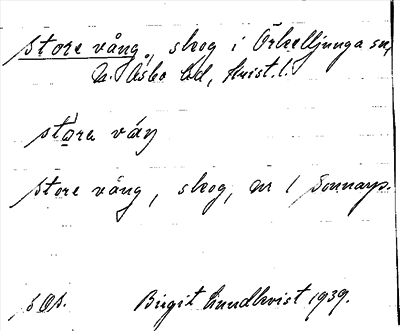 Store vång, skog i Örkelljunga sn,
N. Åsbo hd, Krist. l.
stora váŋ
Store vång, skog, nr 1 Sonnarp.
Birgit Lundkvist 1939.